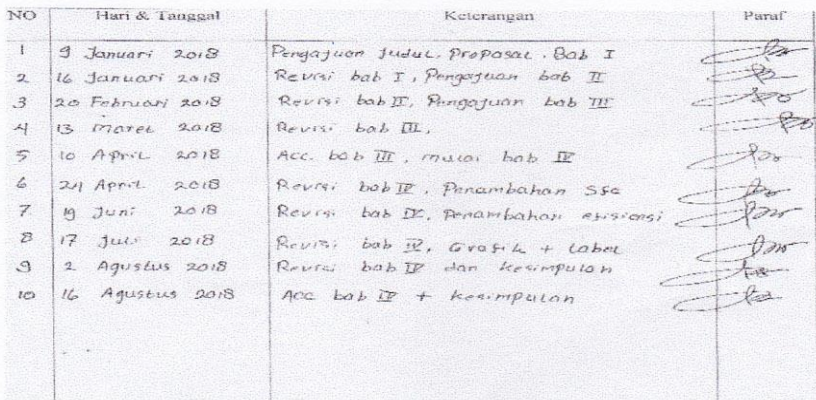 NO Hari & Tanggal Keterangan Paraf
1 9 Januari 2018 Pengajuan Judul. Proposal. Bab I
2 16 Januari 2018 Revisi bab I, Pengajuan bab II
3 20 Februari 2018 Revisi bab II, Pengajuan bab III
4 13 Maret 2018 Revisi bab III,
5 10 April 2018 Acc. bab III, mulai bab IV
6 24 April 2018 Revisi bab IV, Penambahan Sfc
7. 19 Juni 2018 Revisi bab IV, Penambahan efisiensi
8 17 Juli 2018 Revisi bab IV, Grafik + tabel
9 2 Agustus 2018 Revisi bab IV dan Kesimpulan
10 16 Agustus 2018 Acc bab IV + Kesimpulan